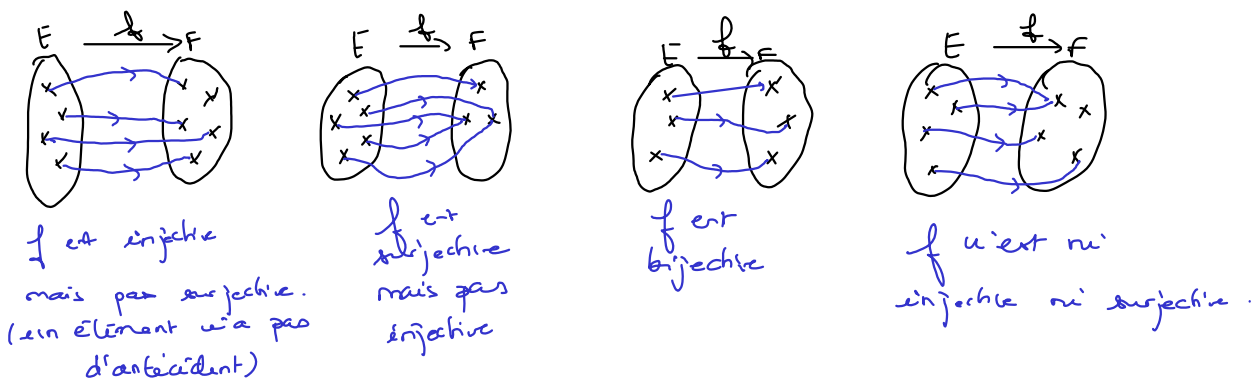 E f F
E f F
E f F
E f F
f est injective
mais pas surjective.
(un élément n'a pas
d'antécédent)
f est
surjective
mais pas
injective
f est
bijective
f n'est ni
injective ni surjective.